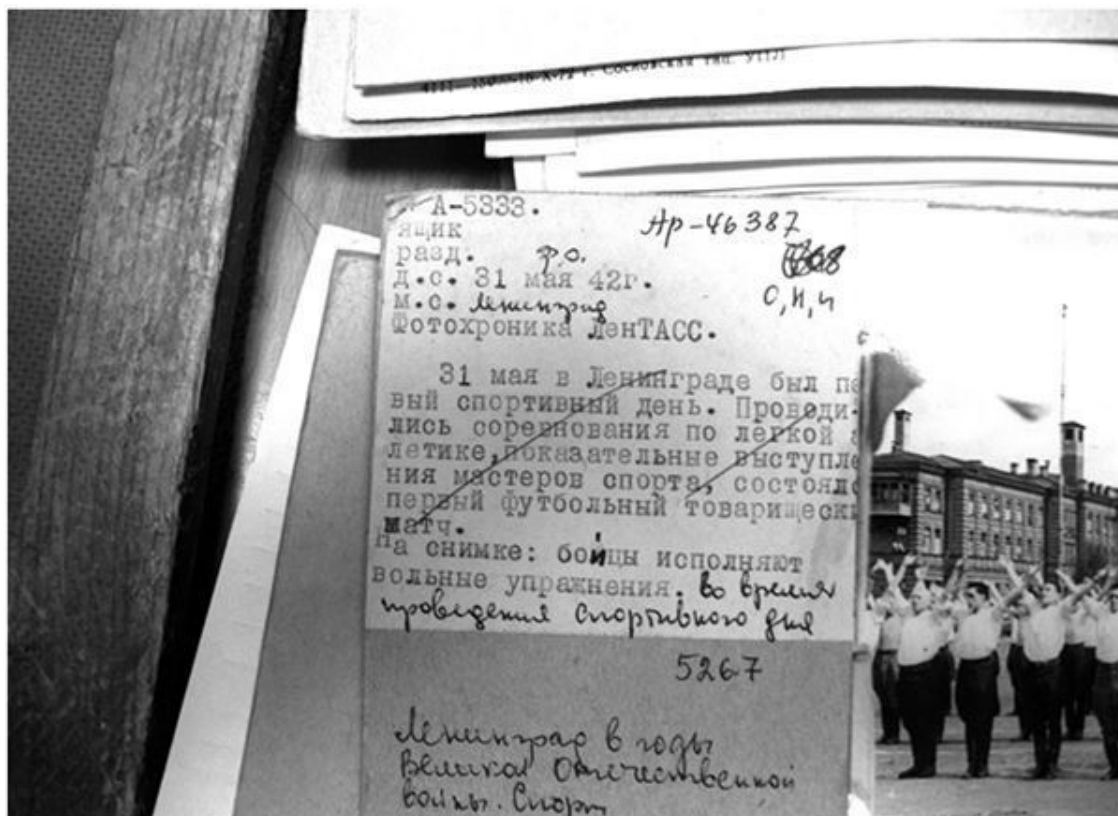 г. Сосновская тип.
А-5333.
Ар-46387
ящик
разд. ф.о.
д.с. 31 мая 42г.
О,И,Ч
м.с. Ленинград
Фотохроника ЛенТАСС.
31 мая в Ленинграде был пе
вый спортивный день. Проводи-
лись соревнования по легкой а
летике,показательные выступле
ния мастеров спорта, состоялс
первый футбольный товарищески
матч.
На снимке: бойцы исполняют
вольные упражнения. во время
проведения спортивного дня
5267
Ленинград в годы
Великой Отечественной
войны. Спорт